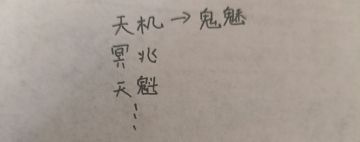 天机→鬼魅
冥兆
天魁
⋮